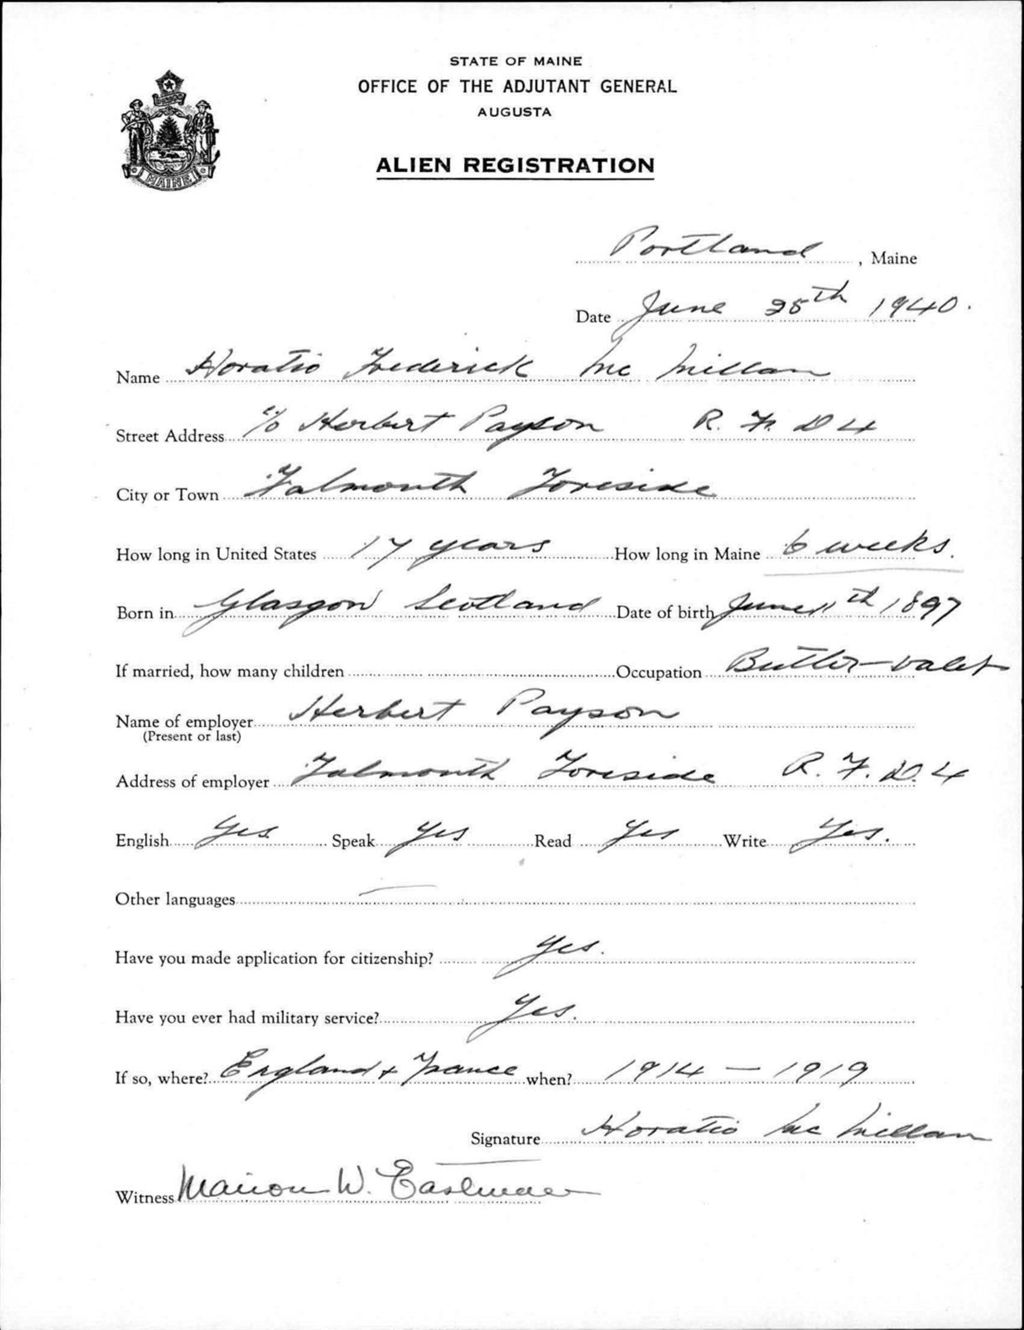 STATE OF MAINE
OFFICE OF THE ADJUTANT GENERAL
AUGUSTA
ALIEN REGISTRATION
MAINE
Portland, Maine
Date June 25th 1940.
Name Horatio Frederick Mc Millan
Street Address c/o Herbert Payson R. F. D 4
City or Town Falmouth Foreside
How long in United States 17 years How long in Maine 6 weeks.
Born in Glasgow Scotland Date of birth June 11th 1897
If married, how many children Occupation Butler-valet
Name of employer Herbert Payson
(Present or last)
Address of employer Falmouth Foreside R. F. D. 4
English Yes Speak Yes Read Yes Write Yes.
Other languages —
Have you made application for citizenship? Yes.
Have you ever had military service? Yes.
If so, where? England + France when? 1914 — 1919
Signature Horatio Mc Millan
Witness Marion W. Eastman